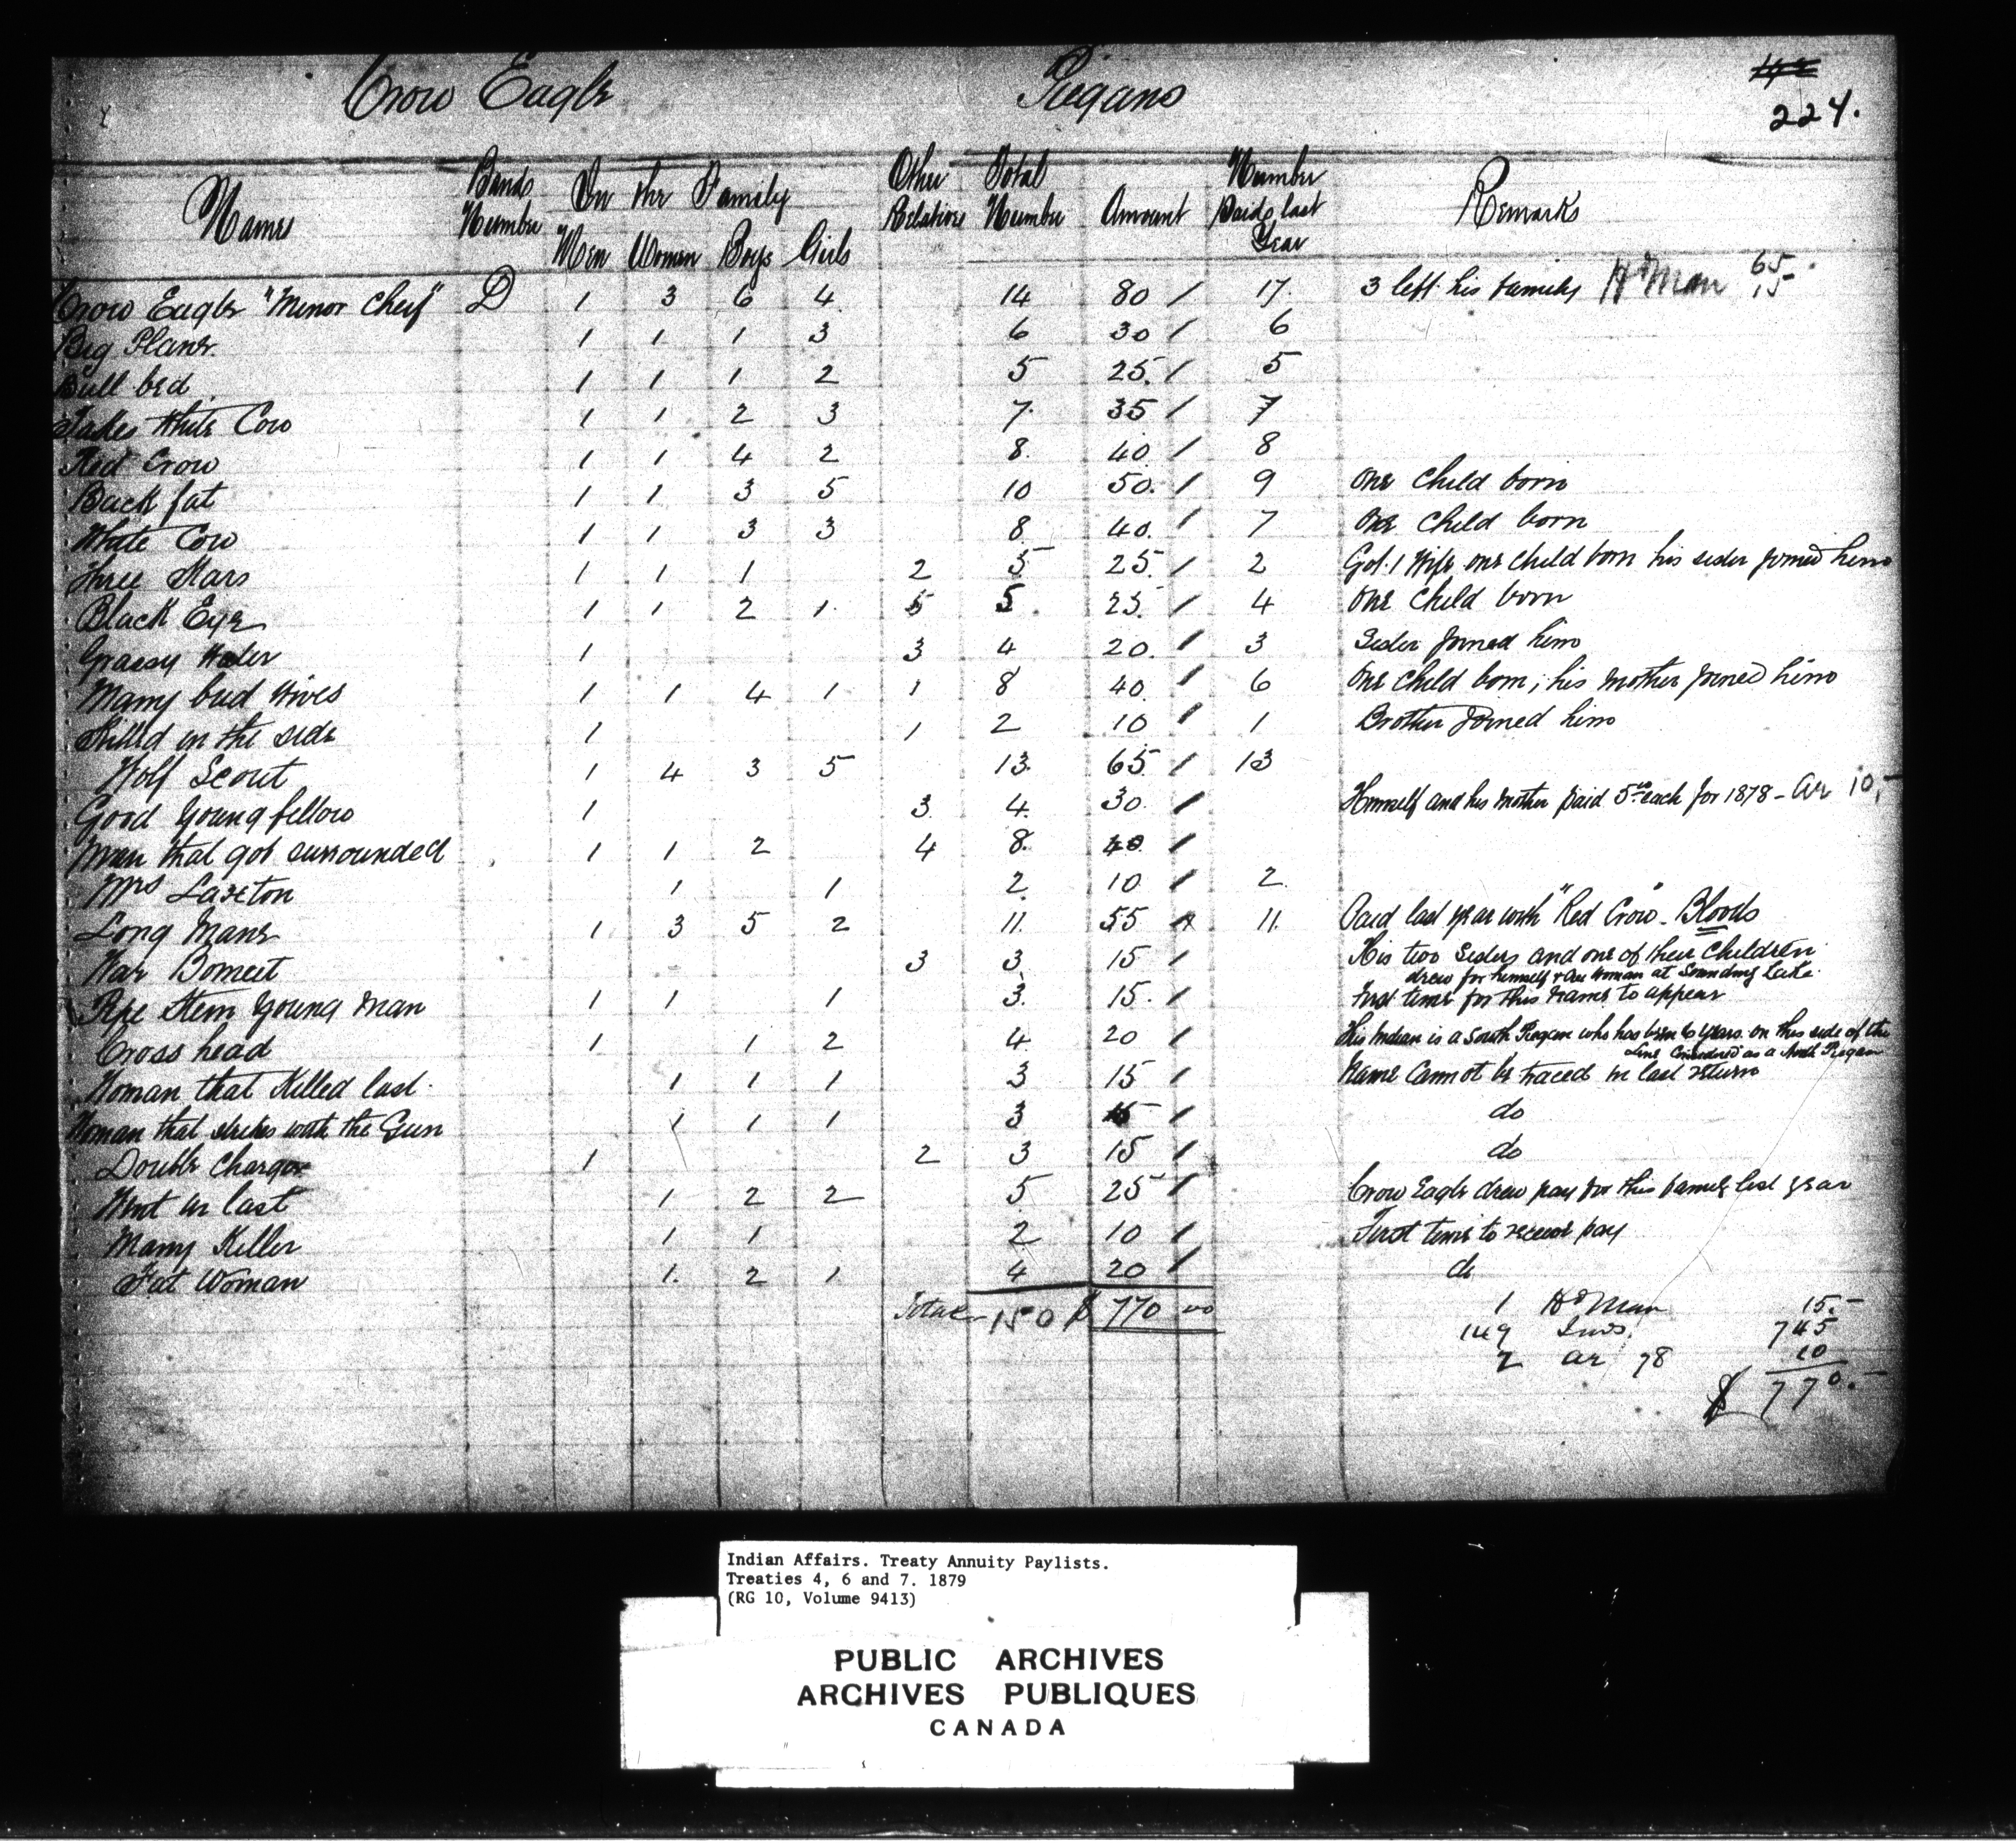 Crow Eagle Piegans
224.
Names Bands Number In the Family Other Relations Total Number Amount Number Paid last Year Remarks
Men Women Boys Girls
Crow Eagle "Minor Cheif" D 1 3 6 4 14 80 / 17 3 left his family Hd Man 65 15
Big Plane 1 1 1 3 6 30 / 6
Bull bed 1 1 1 2 5 25 / 5
Takes White Cow 1 1 2 3 7 35 / 7
Red Crow 1 1 4 2 8 40 / 8
Back fat 1 1 3 5 10 50 / 9 One Child born
White Cow 1 1 3 3 8 40 / 7 One Child born
Three Stars 1 1 1 2 5 25 / 2 Got 1 Wife one child born his sister joined him
Black Eye 1 1 2 1 5 25 / 4 One Child born
Grassy Water 1 3 4 20 / 3 Sister joined him
Many bad Wives 1 1 4 1 1 8 40 / 6 One Child born; his mother joined him
Killed in the side 1 1 2 10 / 1 Brother joined him
Wolf Scout 1 4 3 5 13 65 / 13
Good Young fellow 1 3 4 30 / Himself and his mother paid 5 each for 1878 - Ar 10.-
Man that got surrounded 1 1 2 4 8 40 /
Mrs Laxton 1 1 2 10 / 2
Long Mane 1 3 5 2 11 55 11 Paid last year with "Red Crow" - Bloods
War 3 3 15 / His two sisters and one of their Children
drew for himself & One Woman at Sounding Lake
Pipe Stem Young Man 1 1 1 3 15 / First time for this name to appear
Cross head 1 1 2 4 20 / This Indian is a South Piegan who has been 6 years on this side of the
Line Considered as a North Piegan
Woman that Killed last 1 1 1 3 15 / Name Cannot be traced in last return
Woman that strikes with the Gun 1 1 1 3 15 / do
Double Charger 1 2 3 15 / do
Went in last 1 2 2 5 25 / Crow Eagle drew pay for this family last year
Many Killer 1 1 2 10 / First time to receive pay
Fat Woman 1 2 1 4 20 / do
Total 150 $ 770 00
1 Hd Man 15.-
149 Inds. 745
2 ar 78 10
$ 770.-
Indian Affairs. Treaty Annuity Paylists.
Treaties 4, 6 and 7. 1879
(RG 10, Volume 9413)
PUBLIC ARCHIVES
ARCHIVES PUBLIQUES
CANADA